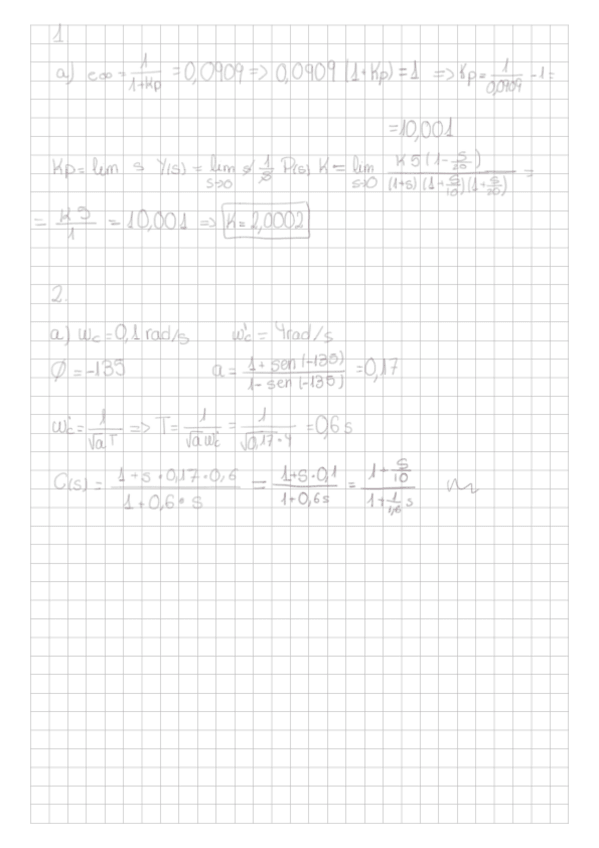 1
a) e∞ = 1/(1+Kp) = 0,0909 => 0,0909 (1+Kp) = 1 => Kp = 1/0,0909 - 1 =
= 10,001
Kp = lim s Y(s) = lim s→0 s 1/s P(s) K = lim s→0 K 5 (1 - s/20) / ((1+s) (1 + s/10) (1 + s/20)) =
= K 5/1 = 10,001 => K = 2,0002
2.
a) ωc = 0,1 rad/s ωc' = 4 rad/s
Ø = -135 a = (1 + sen(-135)) / (1 - sen(-135)) = 0,17
ωc' = 1/(√a T) => T = 1/(√a ωc') = 1/(√0,17 · 4) = 0,6 s
C(s) = (1 + s · 0,17 · 0,6) / (1 + 0,6 · s) = (1 + s · 0,1) / (1 + 0,6 s) = (1 + s/10) / (1 + 1/1,6 s)